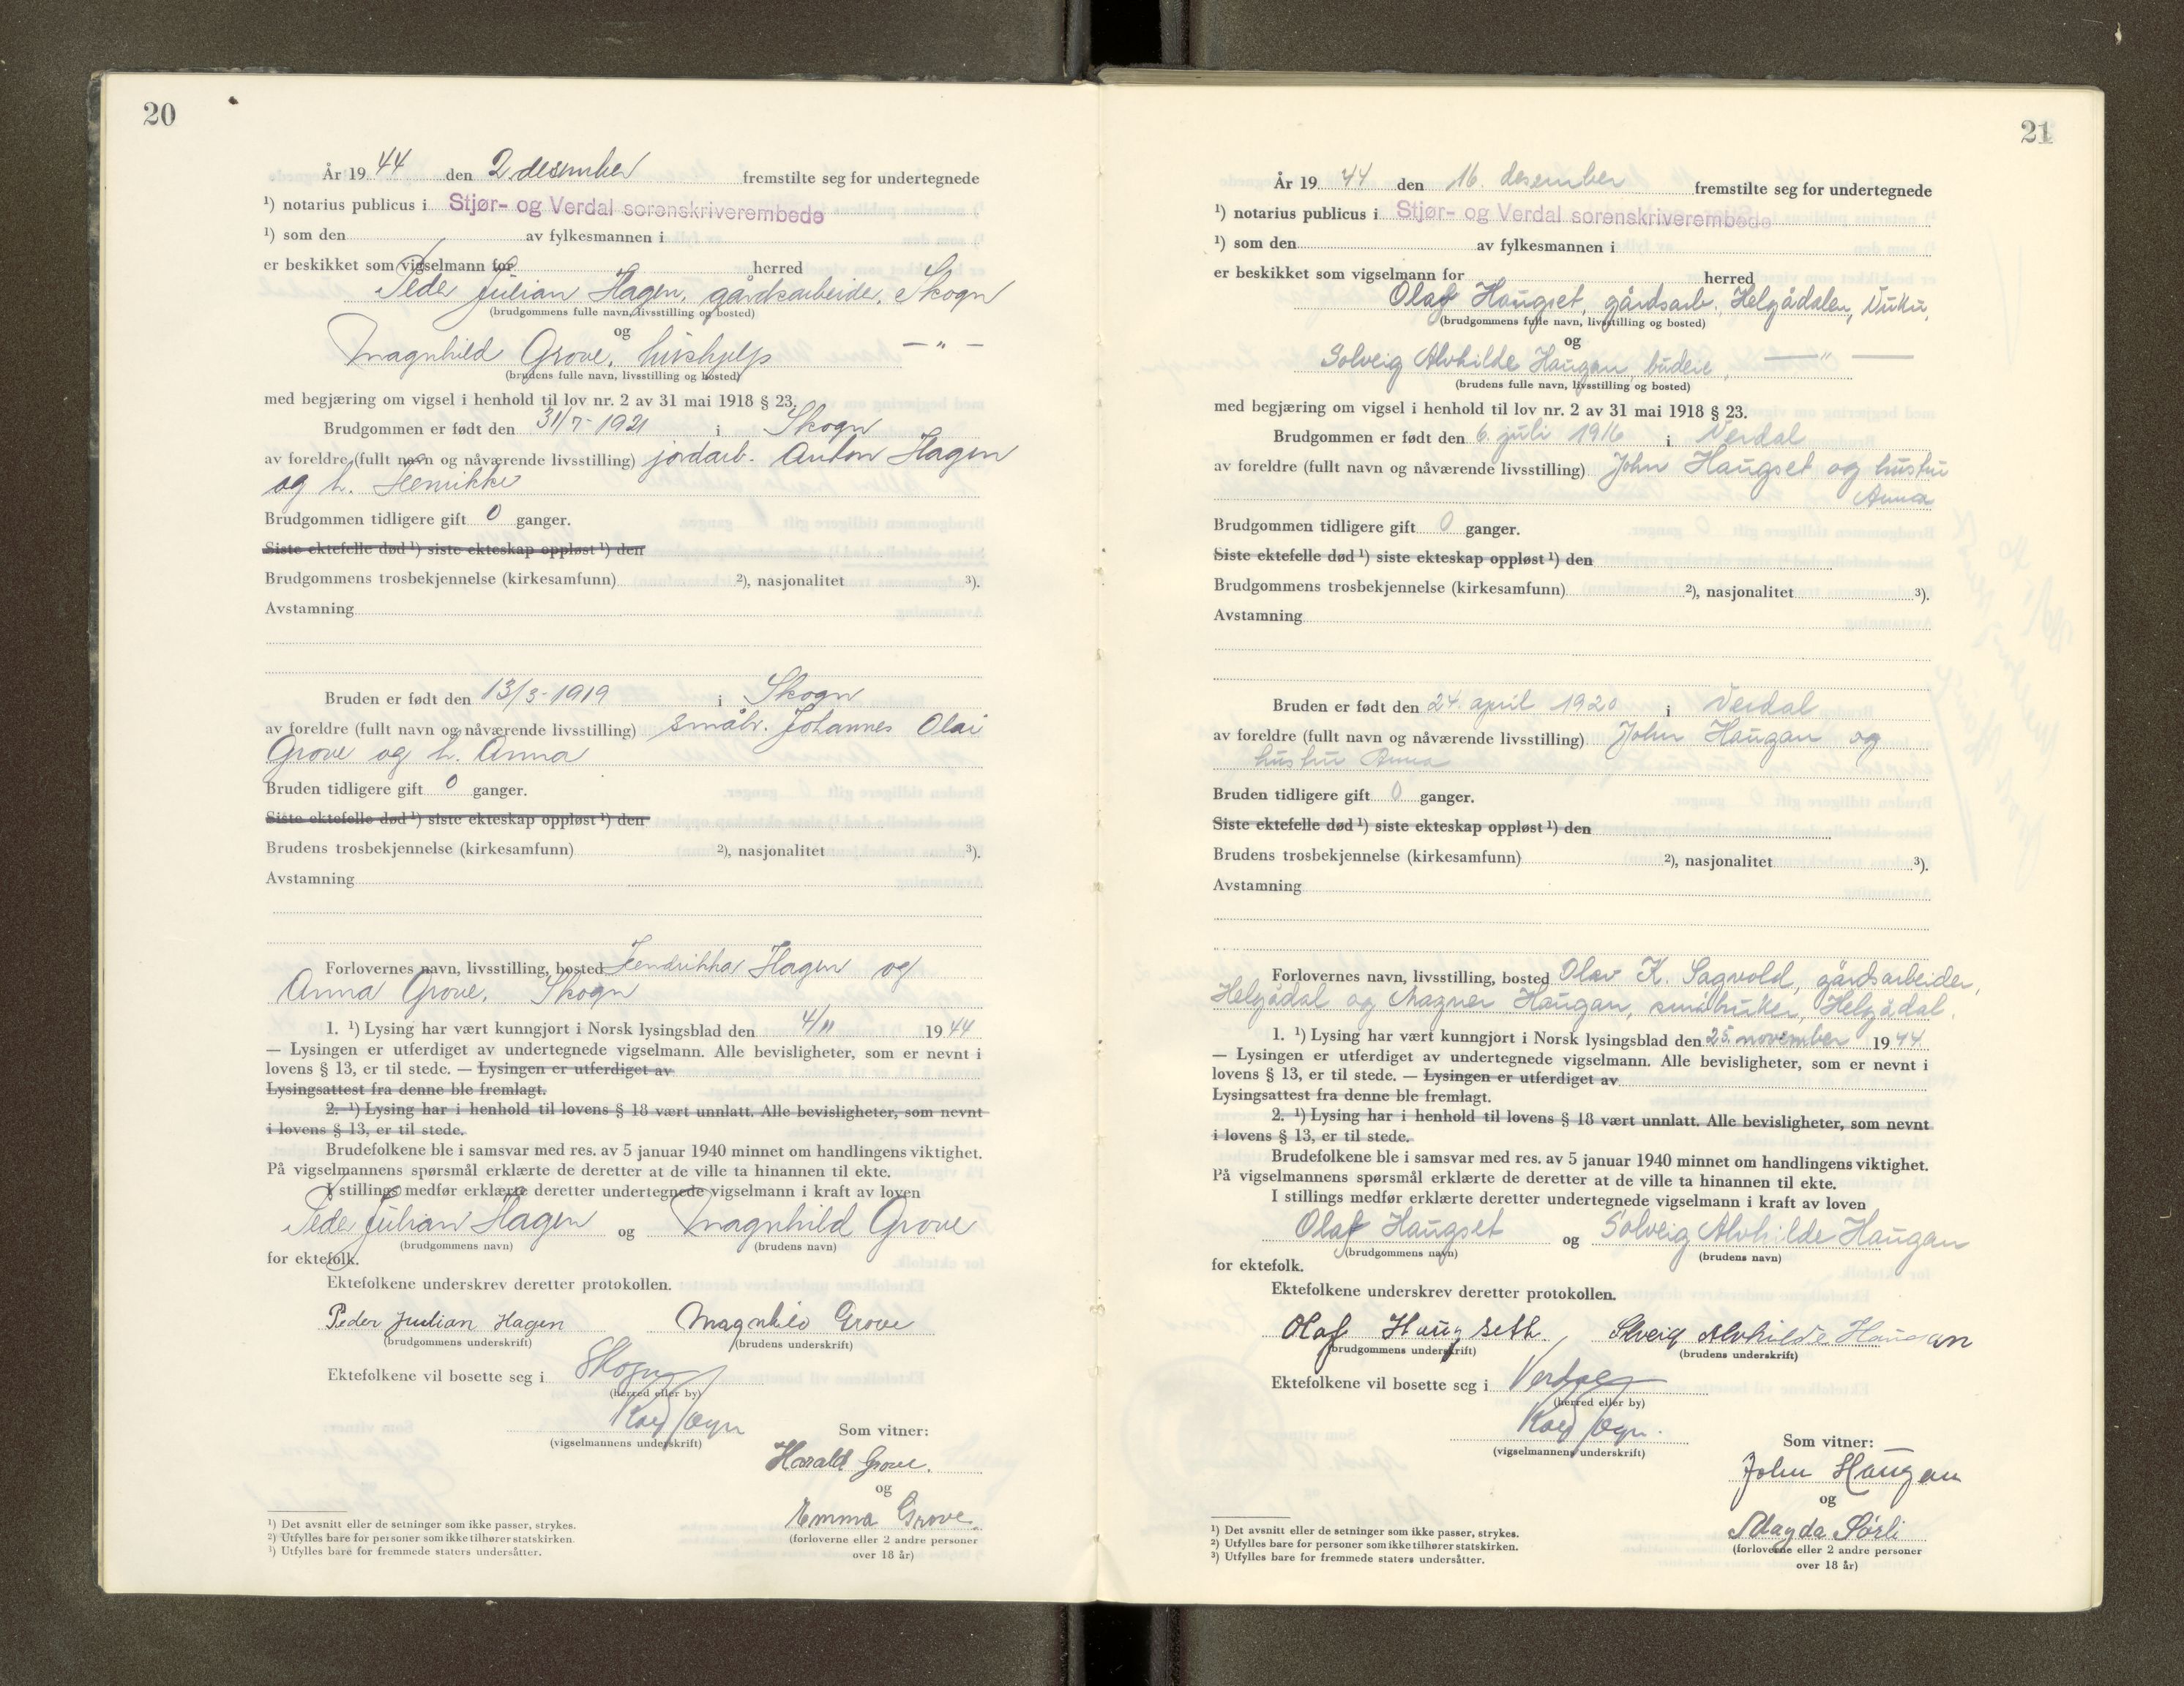 20
År 19 44 den 2 desember fremstilte seg for undertegnede
¹) notarius publicus i Stjør- og Verdal sorenskriverembede
¹) som den av fylkesmannen i
er beskikket som vigselmann for herred
Peder Julian Hagen, gårdsarbeider, Skogn
(brudgommens fulle navn, livsstilling og bosted)
og
Magnhild Grove, hushjelp — " —
(brudens fulle navn, livsstilling og bosted)
med begjæring om vigsel i henhold til lov nr. 2 av 31 mai 1918 § 23.
Brudgommen er født den 31/7-1921 i Skogn
av foreldre (fullt navn og nåværende livsstilling) jordarb. Anton Hagen
og h. Henrikke
Brudgommen tidligere gift 0 ganger.
Siste ektefelle død ¹) siste ekteskap oppløst ¹) den
Brudgommens trosbekjennelse (kirkesamfunn) ²), nasjonalitet ³).
Avstamning
Bruden er født den 13/3-1919 i Skogn
av foreldre (fullt navn og nåværende livsstilling) småbr. Johannes Olai
Grove og h. Anna
Bruden tidligere gift 0 ganger.
Siste ektefelle død ¹) siste ekteskap oppløst ¹) den
Brudens trosbekjennelse (kirkesamfunn) ²), nasjonalitet ³).
Avstamning
Forlovernes navn, livsstilling, bosted Hendrikka Hagen og
Anna Grove, Skogn
1. ¹) Lysing har vært kunngjort i Norsk lysingsblad den 4/11 19 44
— Lysingen er utferdiget av undertegnede vigselmann. Alle bevisligheter, som er nevnt i
lovens § 13, er til stede. — Lysingen er utferdiget av
Lysingsattest fra denne ble fremlagt.
2. ¹) Lysing har i henhold til lovens § 18 vært unnlatt. Alle bevisligheter, som nevnt
i lovens § 13, er til stede.
Brudefolkene ble i samsvar med res. av 5 januar 1940 minnet om handlingens viktighet.
På vigselmannens spørsmål erklærte de deretter at de ville ta hinannen til ekte.
I stillings medfør erklærte deretter undertegnede vigselmann i kraft av loven
Peder Julian Hagen og Magnhild Grove
(brudgommens navn) (brudens navn)
for ektefolk.
Ektefolkene underskrev deretter protokollen.
Peder Julian Hagen Magnhild Grove
(brudgommens underskrift) (brudens underskrift)
Ektefolkene vil bosette seg i Skogn
(herred eller by)
(vigselmannens underskrift)
Som vitner:
Harald Grove.
og
Emma Grove.
(forloverne eller 2 andre personer
over 18 år)
¹) Det avsnitt eller de setninger som ikke passer, strykes.
²) Utfylles bare for personer som ikke tilhører statskirken.
³) Utfylles bare for fremmede staters undersåtter.
21
År 19 44 den 16. desember fremstilte seg for undertegnede
¹) notarius publicus i Stjør- og Verdal sorenskriverembede
¹) som den av fylkesmannen i
er beskikket som vigselmann for herred
Olaf Haugset, gårdsarb., Helgådalen, Vuku,
(brudgommens fulle navn, livsstilling og bosted)
og
Solveig Alvhilde Haugan, budeie, — " —
(brudens fulle navn, livsstilling og bosted)
med begjæring om vigsel i henhold til lov nr. 2 av 31 mai 1918 § 23.
Brudgommen er født den 6. juli 1916 i Verdal
av foreldre (fullt navn og nåværende livsstilling) John Haugset og hustru
Anna
Brudgommen tidligere gift 0 ganger.
Siste ektefelle død ¹) siste ekteskap oppløst ¹) den
Brudgommens trosbekjennelse (kirkesamfunn) ²), nasjonalitet ³).
Avstamning
Bruden er født den 24. april 1920 i Verdal
av foreldre (fullt navn og nåværende livsstilling) John Haugan og
hustru Anna
Bruden tidligere gift 0 ganger.
Siste ektefelle død ¹) siste ekteskap oppløst ¹) den
Brudens trosbekjennelse (kirkesamfunn) ²), nasjonalitet ³).
Avstamning
Forlovernes navn, livsstilling, bosted Olav K. Sagvold, gårdsarbeider,
Helgådal og Magner Haugan, småbruker, Helgådal.
1. ¹) Lysing har vært kunngjort i Norsk lysingsblad den 25. november 19 44.
— Lysingen er utferdiget av undertegnede vigselmann. Alle bevisligheter, som er nevnt i
lovens § 13, er til stede. — Lysingen er utferdiget av
Lysingsattest fra denne ble fremlagt.
2. ¹) Lysing har i henhold til lovens § 18 vært unnlatt. Alle bevisligheter, som nevnt
i lovens § 13, er til stede.
Brudefolkene ble i samsvar med res. av 5 januar 1940 minnet om handlingens viktighet.
På vigselmannens spørsmål erklærte de deretter at de ville ta hinannen til ekte.
I stillings medfør erklærte deretter undertegnede vigselmann i kraft av loven
Olaf Haugset og Solveig Alvhilde Haugan
(brudgommens navn) (brudens navn)
for ektefolk.
Ektefolkene underskrev deretter protokollen.
Olaf Haugseth Solveig Alvhilde Haugan
(brudgommens underskrift) (brudens underskrift)
Ektefolkene vil bosette seg i Verdal
(herred eller by)
(vigselmannens underskrift)
Som vitner:
John Haugan
og
Magda Sørli
(forloverne eller 2 andre personer
over 18 år)
¹) Det avsnitt eller de setninger som ikke passer, strykes.
²) Utfylles bare for personer som ikke tilhører statskirken.
³) Utfylles bare for fremmede staters undersåtter.